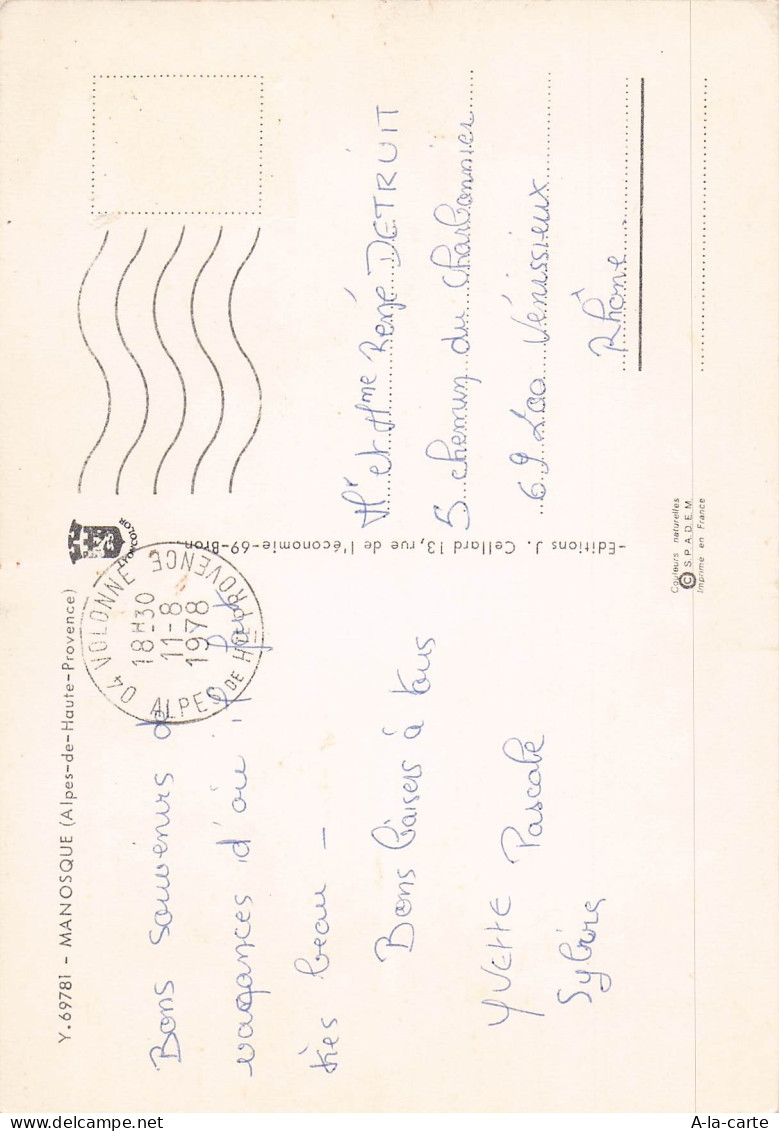 Y.69781 - MANOSQUE (Alpes-de-Haute-Provence)
LYONCOLOR
04 VOLONNE
18H30
11-8
1978
ALPES DE HTE PROVENCE
Bons souvenirs de
vacances d'où il fait
très beau -
Bons baisers à tous
YVETTE Pascale
-Editions J. Cellard 13, rue de l'économie-69-Bron.
Mr et Mme René DETRUIT
5 chemin du Charbonnier
69200 Vénissieux
Rhône
Couleurs naturelles
© S.P.A.D.E.M.
Imprimé en France
A-la-carte